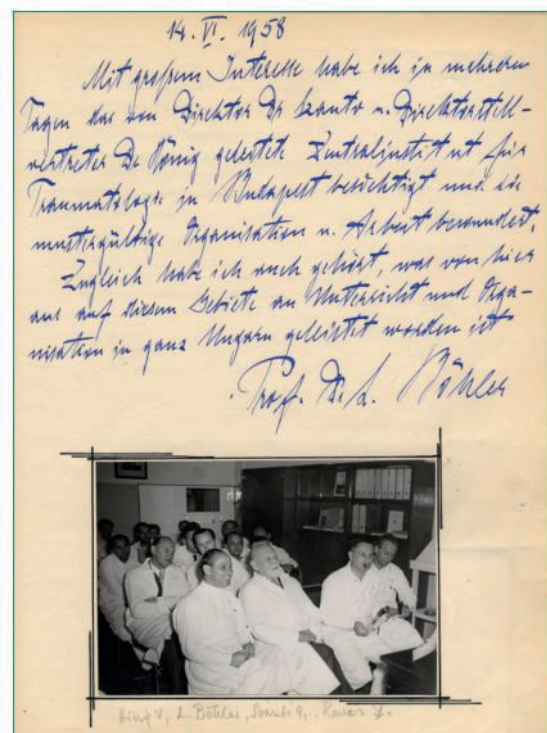 14. VI. 1958
Mit großem Interesse habe ich in mehreren
Tagen das von Direktor Dr Szanto u. Direktorstell-
vertreter Dr König geleitete Zentralinstitut für
Traumatologie in Budapest besichtigt und die
mustergültige Organisation u. Arbeit bewundert.
Zugleich habe ich auch gehört, was von hier
aus auf diesem Gebiete an Unterricht und Orga-
nisation in ganz Ungarn geleistet worden ist
Prof. Dr. L. Böhler
König V, L. Böhler, Szántó G.,